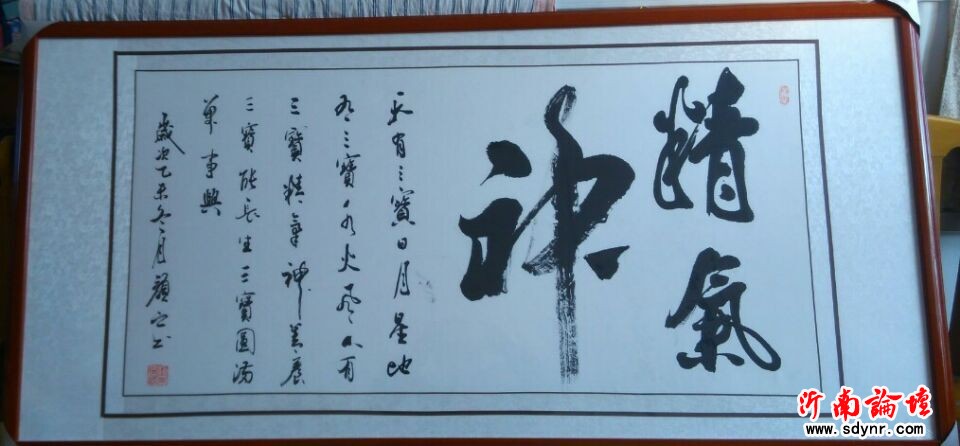 精氣
神
天有三寶日月星地
有三寶水火風人有
三寶精氣神善養
三寶能長生三寶圓滿
萬事興
歲次乙未冬月顏书
沂南論壇
www.sdynr.com